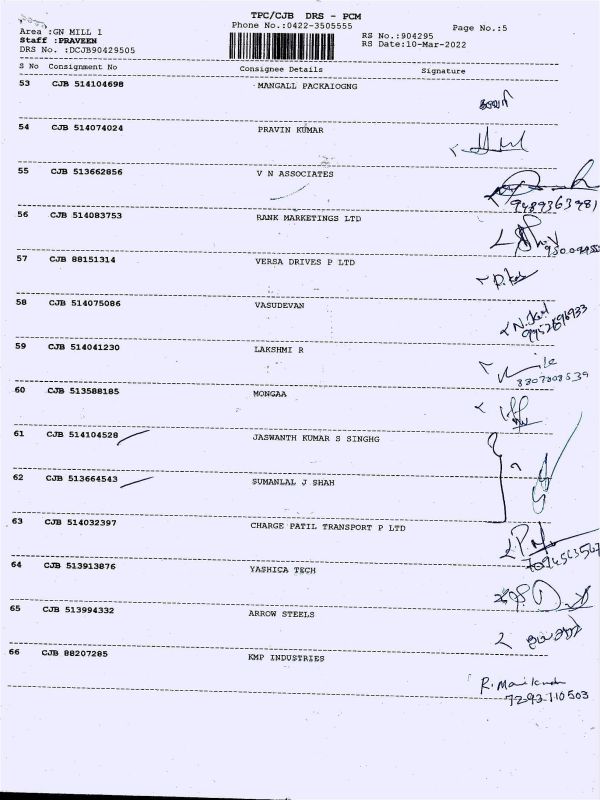 TPC/CJB DRS - PCM
Phone No.:0422-3505555
Page No.:5
Area :GN MILL 1
RS No.:904295
Staff :PRAVEEN
RS Date:10-Mar-2022
DRS No. :DCJB90429505
S No Consignment No Consignee Details Signature
53 CJB 514104698 MANGALL PACKAIOGNG
54 CJB 514074024 PRAVIN KUMAR
55 CJB 513662856 V N ASSOCIATES
9489363981
56 CJB 514083753 RANK MARKETINGS LTD
57 CJB 88151314 VERSA DRIVES P LTD
58 CJB 514075086 VASUDEVAN
59 CJB 514041230 LAKSHMI R
8807808539
60 CJB 513588185 MONGAA
61 CJB 514104528 JASWANTH KUMAR S SINGHG
62 CJB 513664543 SUMANLAL J SHAH
63 CJB 514032397 CHARGE PATIL TRANSPORT P LTD
64 CJB 513913876 YASHICA TECH
65 CJB 513994332 ARROW STEELS
66 CJB 88207285 KMP INDUSTRIES
7292110503